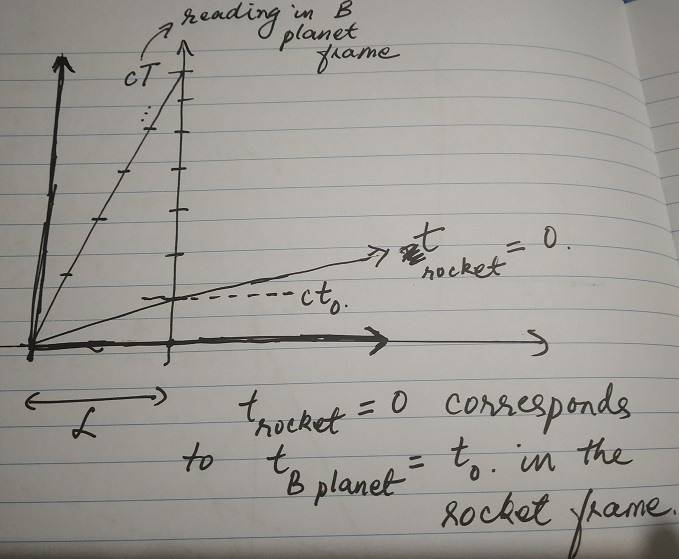 reading in B
planet
frame
cT
t rocket = 0.
ct₀.
L
t rocket = 0 corresponds
to t B planet = t₀. in the
rocket frame.